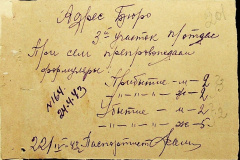 Адрес Бюро
3й участок п/отдел
При сем препровождаем
формуляры:
Прибытие – м – 2
–"– –"– –"– ж – 2
№164
24.4.43
Убытие – м – 2
–"– –"– ж – 5
22/IV-43 Паспортист